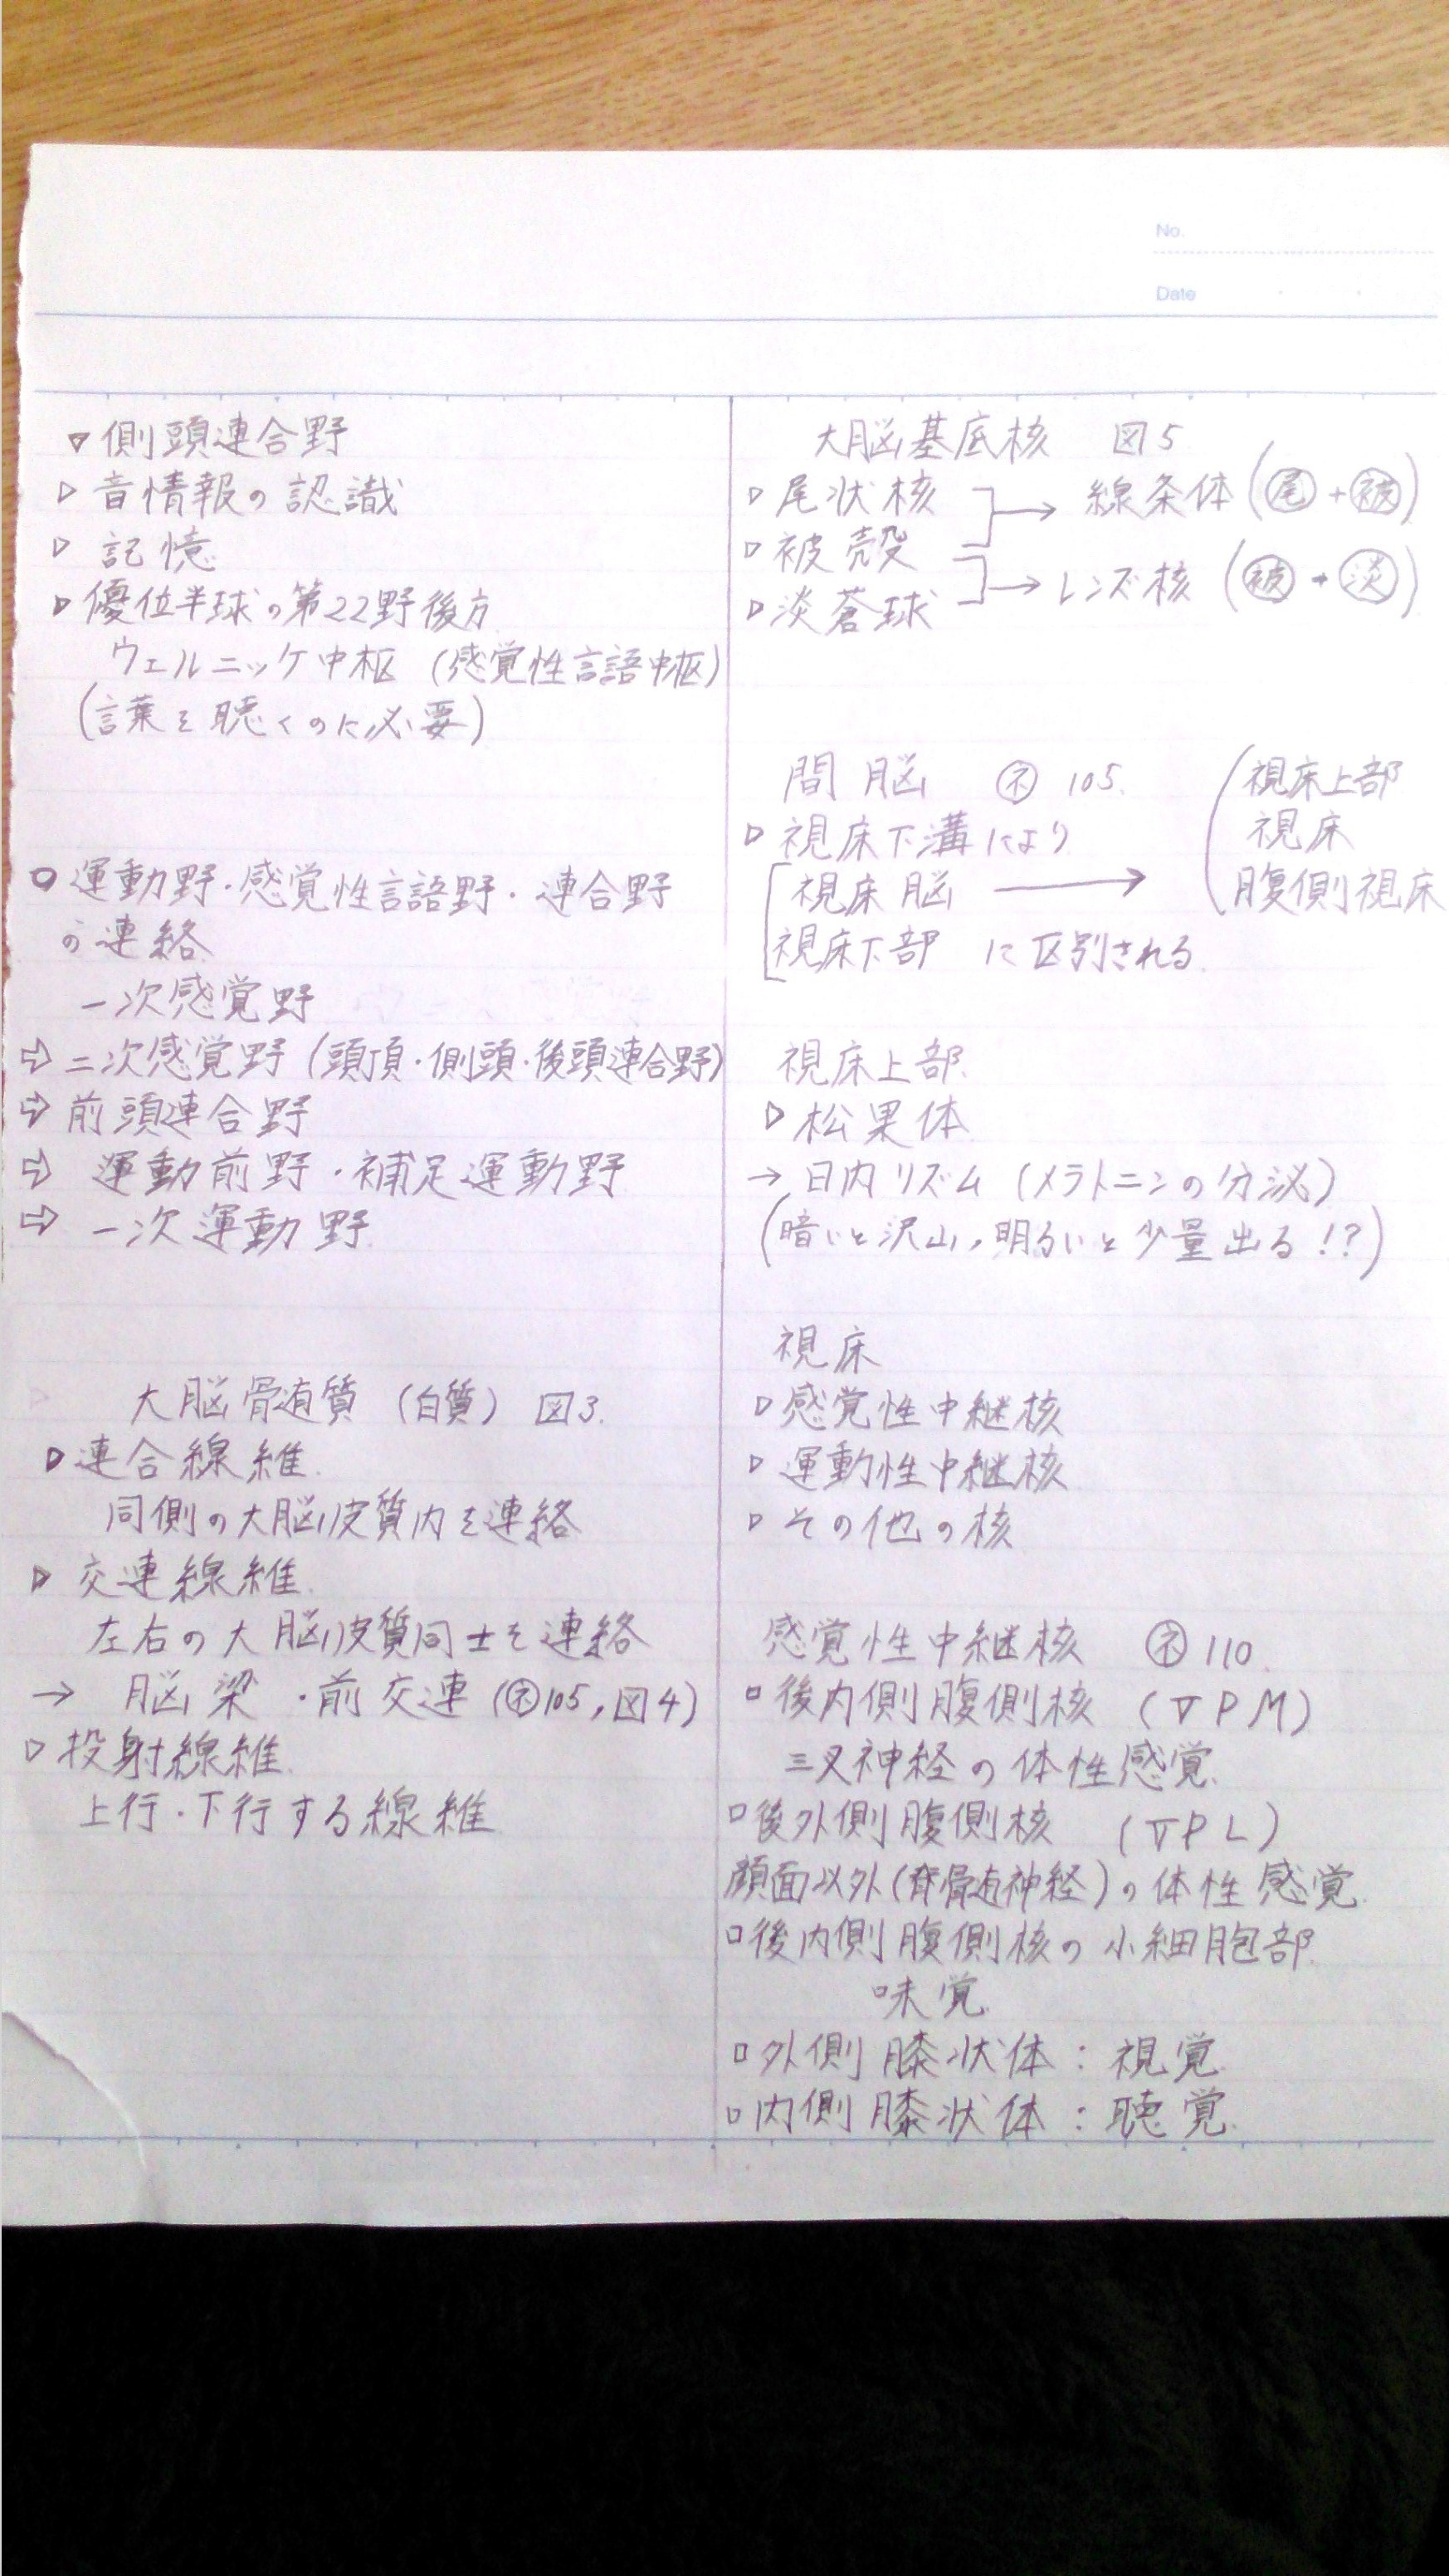 No.
Date
▽側頭連合野
▷音情報の認識
▷記憶
▷優位半球の第22野後方
ウェルニッケ中枢(感覚性言語中枢)
(言葉を聴くのに必要)
○運動野・感覚性言語野・連合野
の連絡
一次感覚野
⇨二次感覚野(頭頂・側頭・後頭連合野)
⇨前頭連合野
⇨運動前野・補足運動野
⇨一次運動野
大脳髄質(白質) 図3.
▷連合線維
同側の大脳皮質内を連絡
▷交連線維
左右の大脳皮質同士を連絡
→脳梁・前交連(ネ105,図4)
▷投射線維
上行・下行する線維
大脳基底核 図5
▷尾状核 → 線条体(尾+被)
▷被殻
▷淡蒼球 → レンズ核(被+淡)
間脳 ネ 105.
▷視床下溝により
視床脳 → 視床上部 視床 腹側視床
視床下部 に区別される
視床上部
▷松果体
→日内リズム(メラトニンの分泌)
(暗いと沢山,明るいと少量出る!?)
視床
▷感覚性中継核
▷運動性中継核
▷その他の核
感覚性中継核 ネ110
□後内側腹側核(VPM)
三叉神経の体性感覚
□後外側腹側核(VPL)
顔面以外(脊髄神経)の体性感覚
□後内側腹側核の小細胞部
味覚
□外側膝状体:視覚
□内側膝状体:聴覚